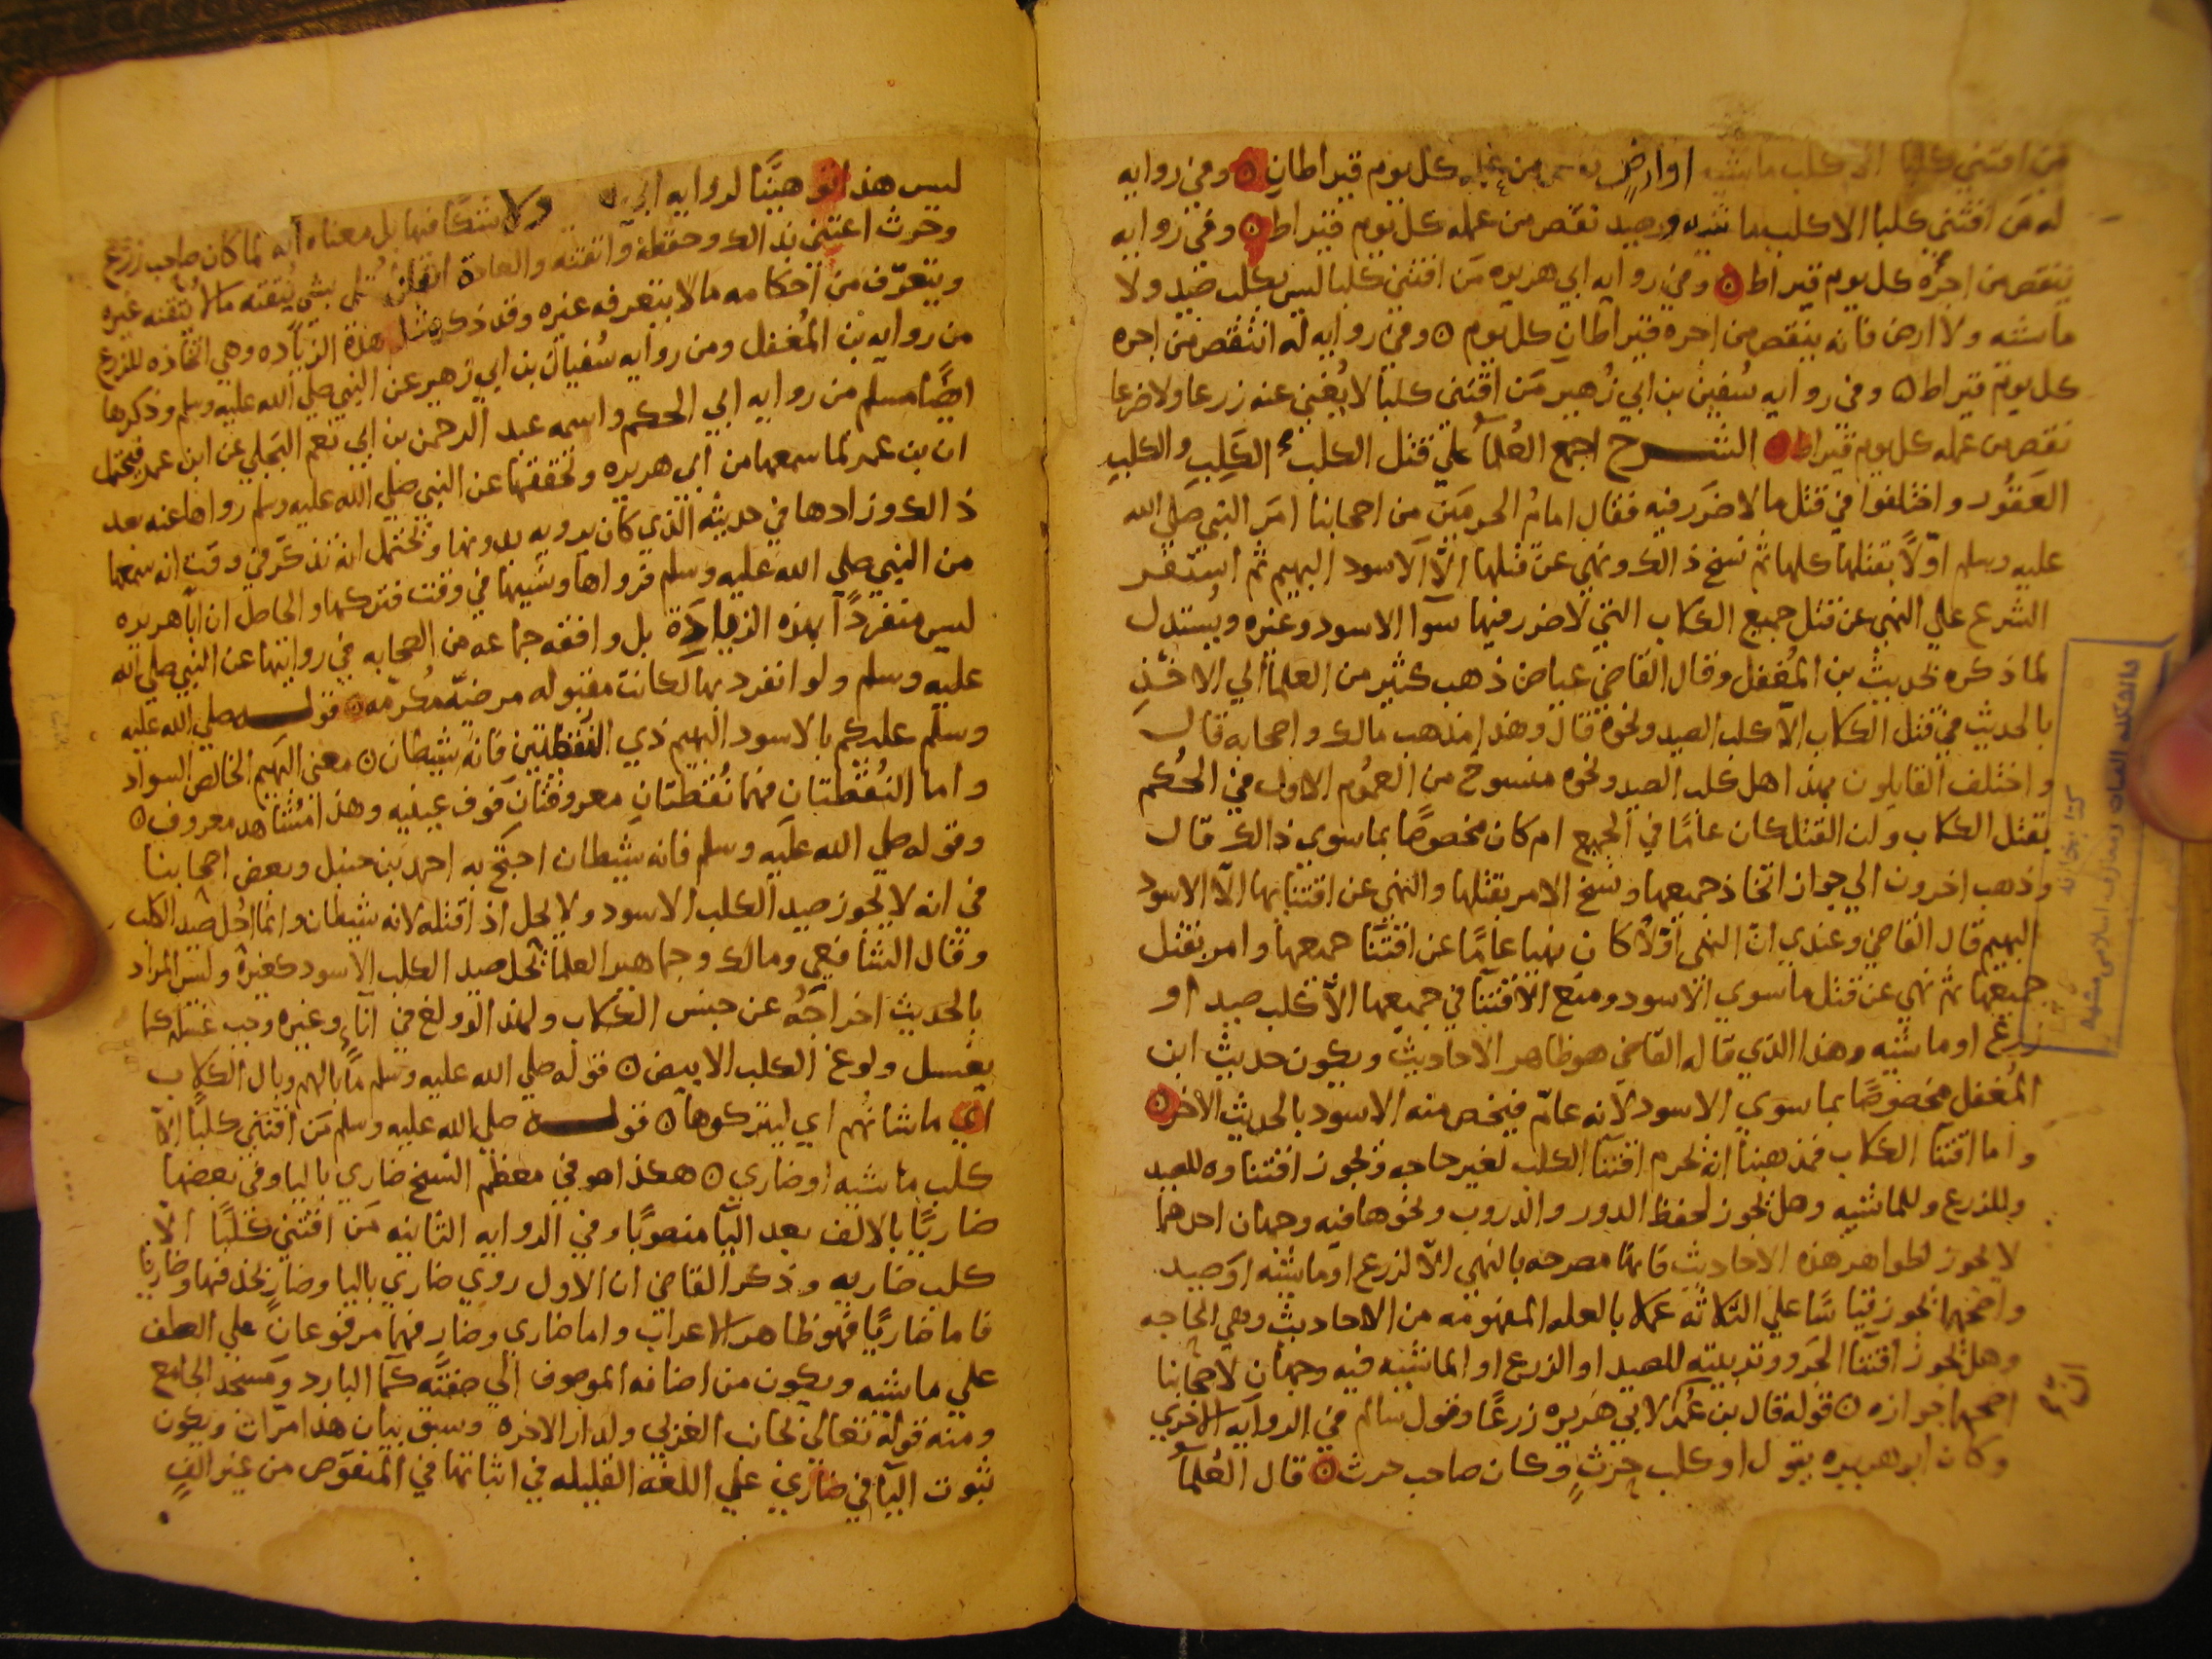 من اقتني كلبا الا كلب ماشيه او ارض من عمله كل يوم قيراطان ٥ وفي روايه
له من اقتني كلبا الا كلب ماشيه وصيد نقص من عمله كل يوم قيراط ٥ وفي روايه
ينقص من اجره كل يوم قيراط ٥ وفي روايه ابي هريره من اقتني كلبا ليس بكلب صيد ولا
ماشيه ولا ارض فانه ينقص من اجره قيراطان كل يوم ٥ وفي روايه له انتقص من اجره
كل يوم قيراط ٥ وفي روايه سُفين بن ابي زُهير مَن اقتني كلبا لا يُغني عنه زرعا ولا ضرعا
نقص من عمله كل يوم قيراط ٥ الشـرح اجمع العُلما علي قتل الكلب الكَلِبِ والكلب
العَقُور واختلفوا في قتل ما لا ضَرَر فيه فقال امامُ الحرمَين من اصحابنا امَر النبي صلي الله
عليه وسلم اوّلًا بقتلها كلها ثم نسخ ذالك ونهي عن قتلها الّا الاسود البهيم ثم استقر
الشرع علي النهي عن قتل جميع الكلاب التي لا ضرر فيها سوآ الاسود وغيره ويُستدل
لما ذكره بحديث بن المُغفل وقال القاضي عياض ذهب كثير من العلما الي الاخذِ
بالحديث في قتل الكلاب الّا كلب الصيد ونحوه قال وهذا مذهب مالك واصحابه قال
واختلف القايلون بهذا هل كلب الصيد ونحوه منسوخ من العمُوم الاول في الحُكم
بقتل الكلاب وان القتل كان عامًا في الجميع ام كان مخصوصًا بما سوي ذالك قال
وذهب اخرون الي جواز اتخاذ جميعها ونسخ الامر بقتلها والنهي عن اقتنايها الّا الاسود
البهيم قال القاضي وعندي انّ النهي اوّلًا كان نهيا عامًّا عن اقتنا جميعها وامر بقتل
جميعها ثم نهي عن قتل ما سوي الاسود ومنع الاقتنا في جميعها الّا كلب صيد او
زرع او ماشيه وهذا الذي قاله القاضي هو ظاهر الاحاديث ويكون حديث ابن
المُغفل مخصُوصًا بما سوي الاسود لانه عامّ فيخص منه الاسود بالحديث الاخر ٥
واما اقتنا الكلاب فمذهبنا انه يحرم اقتنا الكلب لغير حاجه ويجوز اقتناوه للصيد
وللزرع وللماشيه وهل يجوز لحفظ الدور والدروب ونحوها فيه وجهان احدهما
لا يجوز لظواهر هذه الاحاديث فانها مصرحه بالنهي الّا لزرع او ماشيه او صيد
واصحهما يجوز قياسًا علي الثلاثه عملا بالعله المفهومه من الاحاديث وهي الحاجه
وهل يجوز اقتنا الجَرو وتربيته للصيد او الزرع او الماشيه فيه وجهان لاصحابنا
اصحهما جوازه ٥ قوله قال بن عُمر لابي هريره زرعًا وقول سالم في الروايه الاخري
وكان ابو هريره يقول او كلب حرثٍ وكان صاحب حرث ٥ قال العُلما
ليس هذا توهينًا لروايه ابي ولا شكًا فيها بل معناه انه لما كان صاحب زرع
وحرث اعتني بذالك وحفظهُ واتقنه والعادة ان المبتلي بشي يُتقنه ما لا يتقنه غيره
ويتعرّف من احكامه ما لا يتعرفه غيره وقد ذكر هذه الزياده وهي اتخاذه للزرع
من روايه بن المُغفل ومن روايه سُفيان بن ابي زُهير عن النبي صلي الله عليه وسلم وذكرها
ايضًا مسلم من روايه ابي الحكم واسمه عبد الرحمن بن ابي نعم البجلي عن ابن عمر فيحتمل
ان بن عمر لما سمعها من ابي هريره وتحققها عن النبي صلي الله عليه وسلم رواها عنه بعد
ذالك وزادها في حديثه الذي كان يرويه بدونها ويحتمل انه تذكّر في وقت انه سمعها
من النبي صلي الله عليه وسلم فرواها ونسيها في وقت فتركها والحاصل ان ابا هريره
ليس منفردًا بهذه الزيادَة بل وافقه جماعه من الصحابه في روايتها عن النبي صلي الله
عليه وسلم ولو انفرد بها لكانت مقبوله مرضيّه مُكرّمه ٥ قولـه صلي الله عليه
وسلم عليكم بالاسود البهيم ذي النُقطتين فانه شيطان ٥ معني البهيم الخالص السواد
واما النُقطتان فهما نُقطتان معروفتان فوق عينيه وهذا مُشاهد معروف ٥
وقوله صلي الله عليه وسلم فانه شيطان احتج به احمد بن حنبل وبعض اصحابنا
في انه لا يجوز صيد الكلب الاسود ولا يحل اذا قتله لانه شيطان وانما احُل صيد الكلب
وقال الشافعي ومالك وجماهير العلما يحل صيد الكلب الاسود كغيره وليس المراد
بالحديث اخراجَهُ عن جنس الكلاب ولهذا لو ولغ في اناءٍ وغيره وجب غسله كما
يغسل ولوغ الكلب الابيض ٥ قوله صلي الله عليه وسلم ما بالهم وبال الكلاب
اي ما شانُهم اي ليتركوها ٥ قولـه صلي الله عليه وسلم من اقتني كلبًا الّا
كلب ماشيه او ضاري ٥ هكذا هو في معظم النُسخ ضاري باليا وفي بعضها
ضاريًا بالالف بعد اليا منصوبًا وفي الروايه الثانيه مَن اقتني كلبًا الّا
كلب ضاريه وذكر القاضي ان الاول روي ضاري باليا وضارٍ بحذفها وضاريا
فاما ضاريًا فهو ظاهر الاعراب واما ضاري وضارٍ فهما مرفوعان علي العطف
علي ماشيه ويكون من اضافه الموصوف الي صفته كما البارد ومَسجد الجامع
ومنه قوله تعالي بجانب الغربي ولدار الاخره وسبق بيان هذا مرّات ويكون
ثبوت اليا في ضاري علي اللغه القليله في اثباتها في المنقوص من غير الفٍ